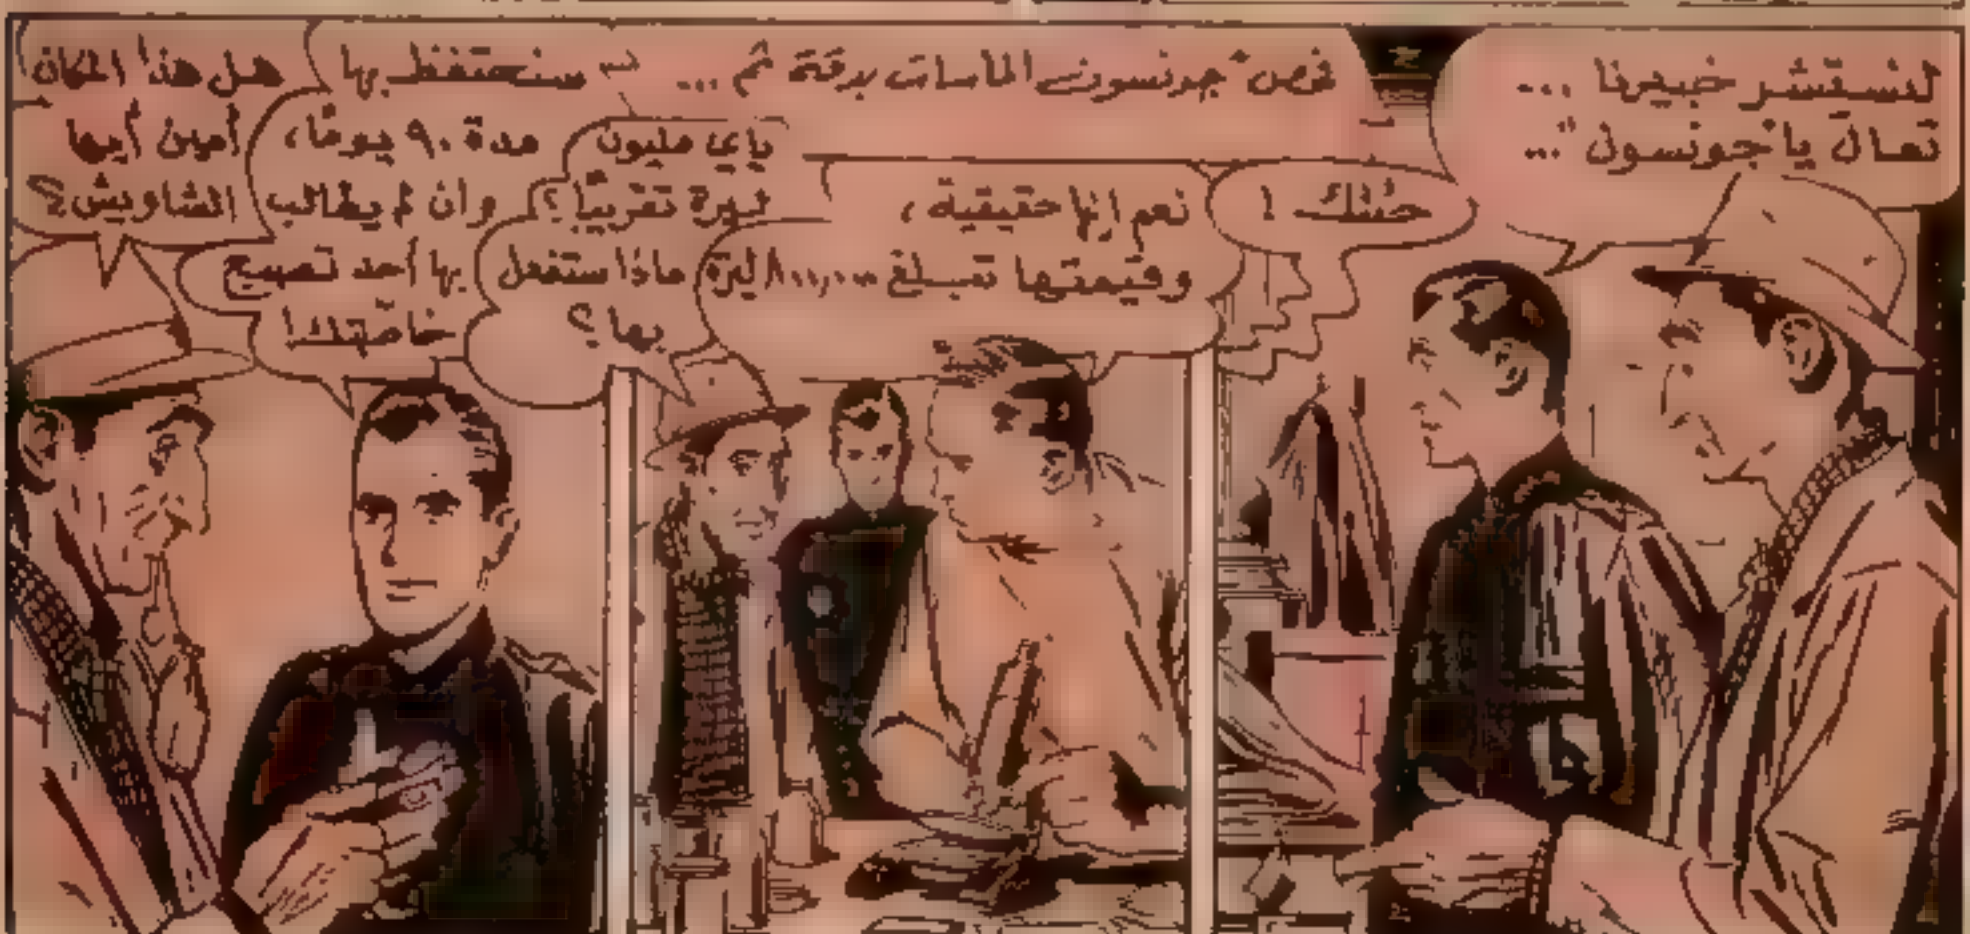 لنستشر خبيرنا ...
تعال يا "جونسون" ...
حسنًا !
فحص "جونسون" الماسات برقة ثم ...
نعم إنها حقيقية ،
وقيمتها تبلغ ٨٠٠,٠٠٠ ليرة
بأي مليون
ليرة تقريبًا ؟
ماذا ستفعل
بها ؟
سنحتفظ بها
مدة ٩٠ يومًا ،
وان لم يطالب
بها أحد تصبح
خاصّتك !
هل هذا المكان
أمين أيها
الشاويش ؟